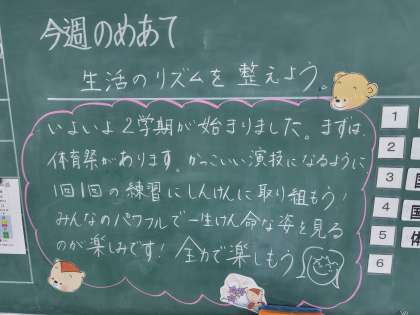 今週のめあて
生活のリズムを整えよう。
いよいよ2学期が始まりました。まずは、
体育祭があります。かっこいい演技になるように
1回1回の練習にしんけんに取り組もう!
みんなのパワフルで一生けん命な姿を見る
のが楽しみです!全力で楽しもう
1
2
3
4
5
6
国
体